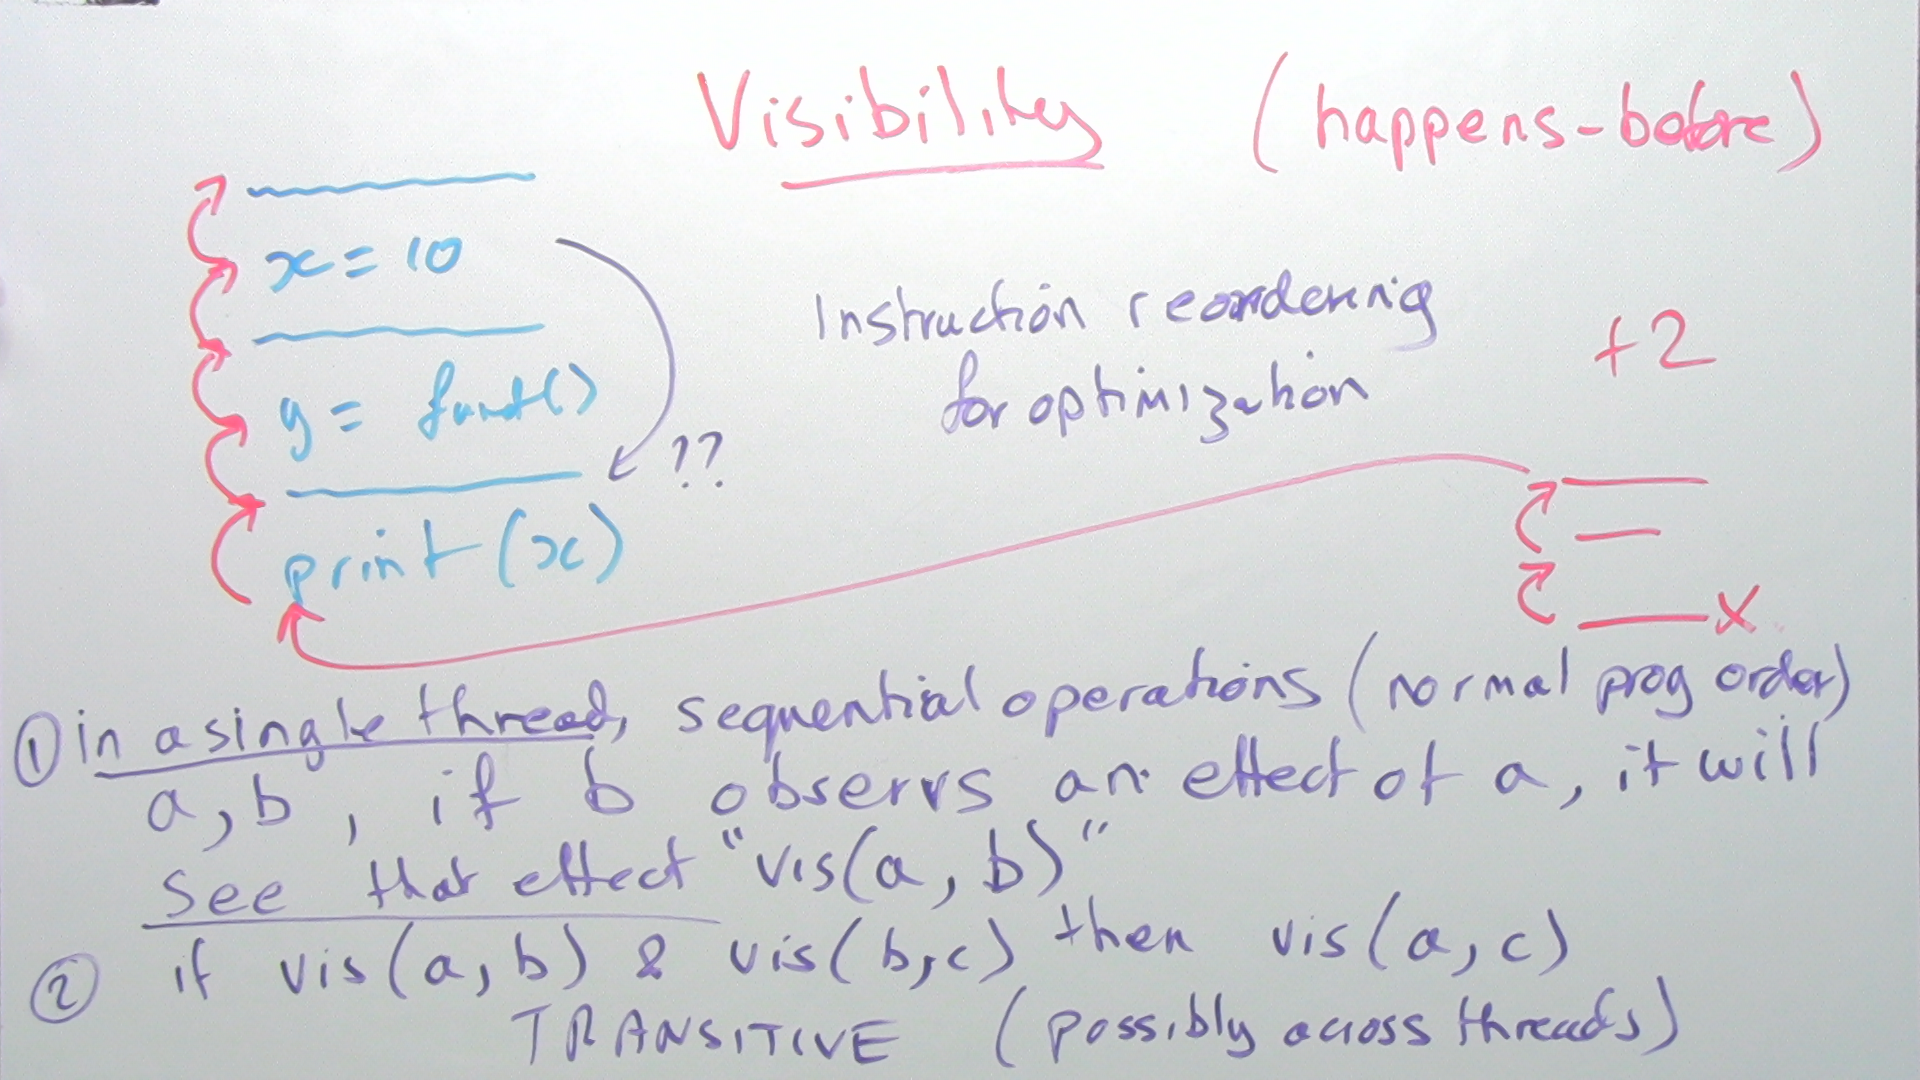 Visibility (happens-before)
x = 10
y = funct()
print (x)
??
Instruction reordering
for optimization
+2
X
① in a single thread, sequential operations (normal prog order)
a, b, if b observs an effect of a, it will
see that effect "vis(a, b)"
② if vis(a, b) & vis(b,c) then vis(a, c)
TRANSITIVE (possibly across threads)